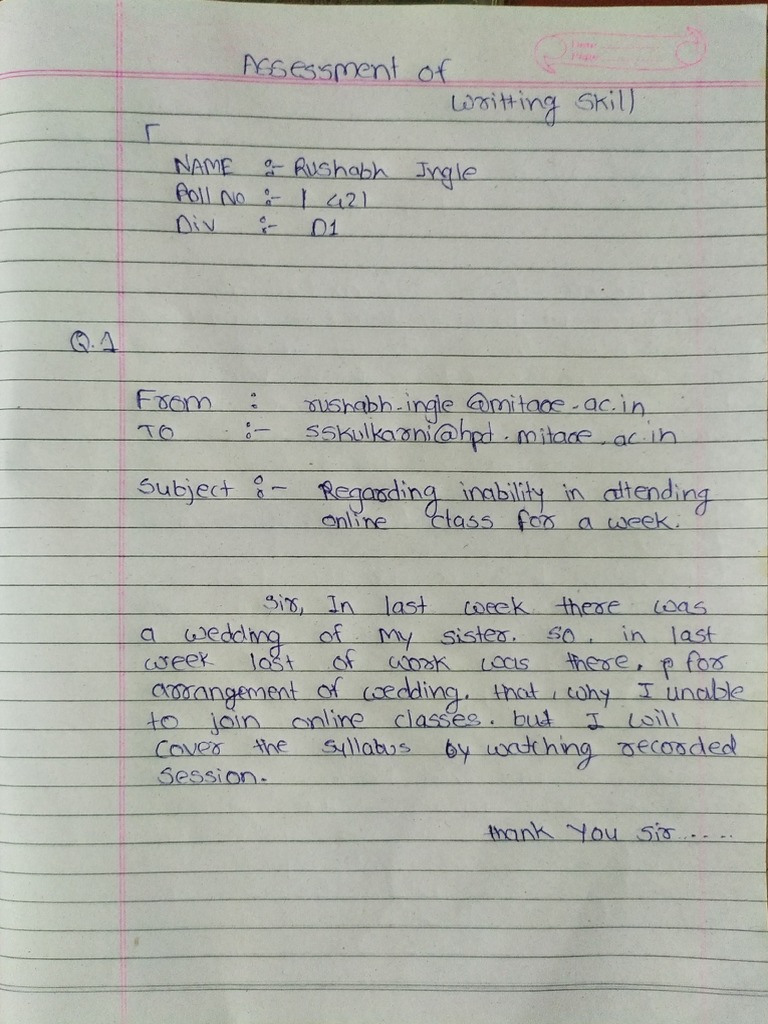 Assessment of
Writting Skill
NAME :- Rushabh Ingle
Roll No :- 1421
Div :- D1
Q.1
From : rushabh.ingle@mitaoe.ac.in
TO :- sskulkarni@hpd.mitaoe.ac.in
Subject :- Regarding inability in attending
online class for a week.
Sir, In last week there was
a wedding of my sister. so. in last
week lost of work was there, for
arrangement of wedding. that, why I unable
to join online classes. but I will
cover the syllabus by watching recorded
session.
thank you sir.....